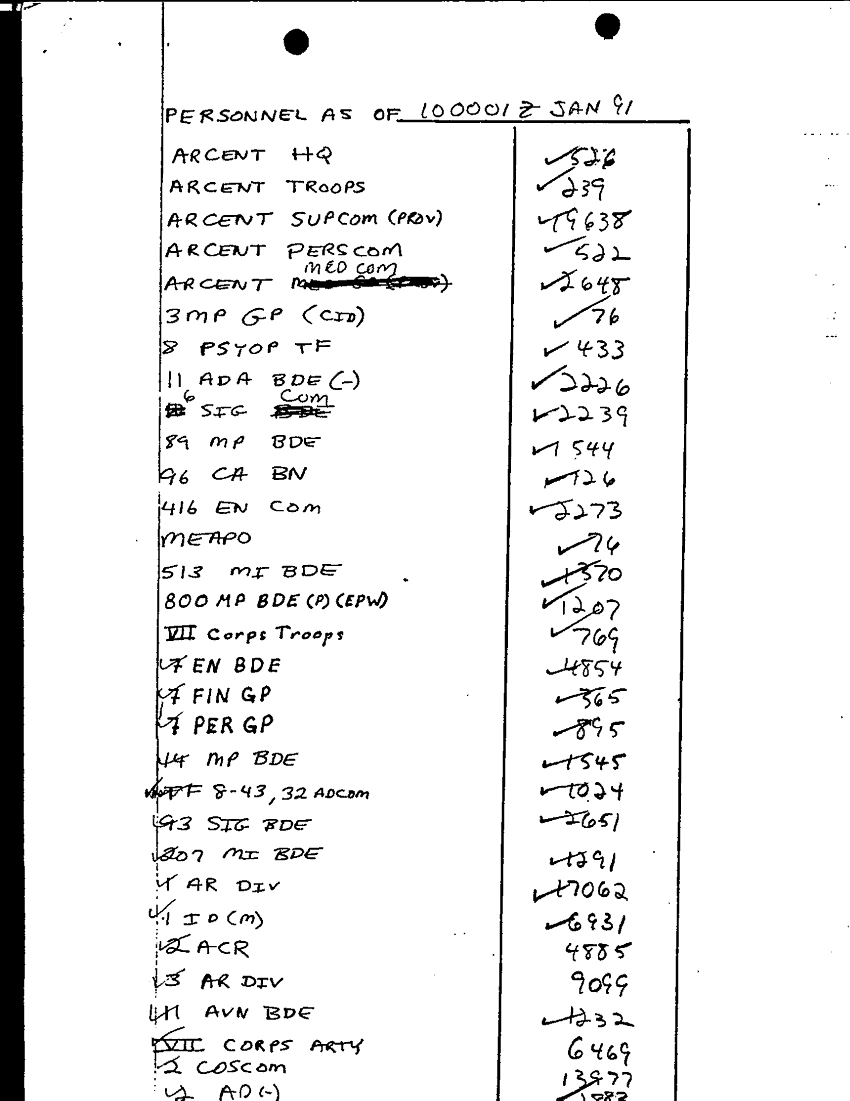 PERSONNEL AS OF 100001Z JAN 91
ARCENT HQ 526
ARCENT TROOPS 239
ARCENT SUPCOM (PROV) 19638
ARCENT PERSCOM 522
MEDCOM
ARCENT 2648
3 MP GP (CID) 76
8 PSYOP TF 433
11 ADA BDE (-) 2226
6 SIG COM 2239
89 MP BDE 1544
96 CA BN 126
416 EN COM 2273
MEAPO 74
513 MI BDE 1370
800 MP BDE (P) (EPW) 1207
VII Corps Troops 769
7 EN BDE 4854
7 FIN GP 365
7 PER GP 895
14 MP BDE 1545
TF 8-43, 32 ADCOM 1024
93 SIG BDE
207 MI BDE 1291
1 AR DIV 17062
1 ID (M) 6931
2 ACR 4885
3 AR DIV 9099
11 AVN BDE 1232
VII CORPS ARTY 6469
2 COSCOM 13977
AD (-)